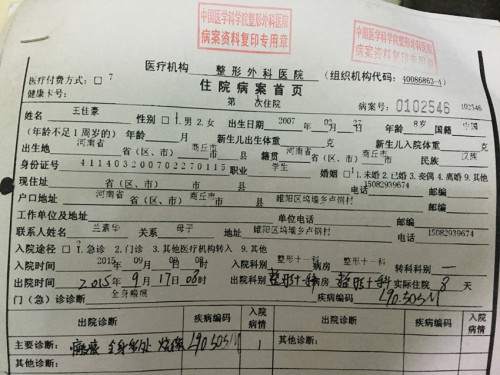 中国医学科学院整形外科医院
病案资料复印专用章
中国医学科学院整形外科医院
病案资料复印专用章
医疗机构 整形外科医院 (组织机构代码: 40086863-4)
医疗付费方式: 7 住院病案首页
健康卡号: 第 次住院 病案号: 0102546 102546
姓名 王任豪 性别 1.男 2.女 出生日期 2007 年 02 月 27 年龄 8岁 国籍 中国
(年龄不足1周岁的) 年龄 月 新生儿出生体重 克 新生儿入院体重 克
出生地 河南省 省(区、市) 商丘市 市 县 籍贯 河南省 省(区、市) 商丘市 市 民族 汉族
身份证号 411403200702270115 职业 学生 婚姻 1.未婚 2.已婚 3.丧偶 4.离婚 9.其他
现住址 省(区、市) 市 县 电话 15082939674 邮编
户口地址 河南省 省(区、市) 商丘市 市 县 睢阳区坞墙乡卢饲村 邮编
工作单位及地址 单位电话 邮编
联系人姓名 兰素华 关系 母子 地址 睢阳区坞墙乡卢饲村 电话 15082939674
入院途径 1.急诊 2.门诊 3.其他医疗机构转入 9.其他
入院时间 2015年 09月 08 入院科别 整形十一科 病房 整形十一科 转科科别 —
出院时间 2015年 9月 17日 08时 出院科别 整形十一科 病房 整形十一科 实际住院 8 天
门(急)诊诊断 全身瘢痕 疾病编码 L90.505M
出院诊断 疾病编码 入院病情 出院诊断 疾病编码 入院病情
主要诊断: 瘢痕 全身多处 烧伤 L90.505M 1 其他诊断:
其他诊断: